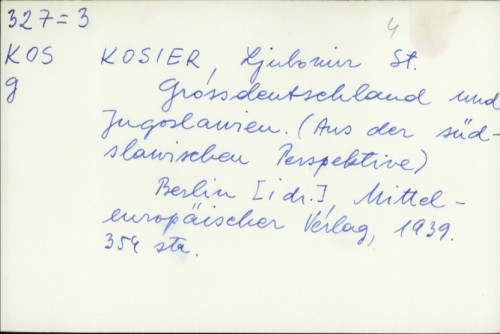 327=3
4
KOS KOSIER, Ljubomir St.
g Grossdeutschland und
Jugoslawien. (Aus der süd-
slawischen Perspektive)
Berlin [i dr.], Mittel-
europäischer Verlag, 1939.
354 str.